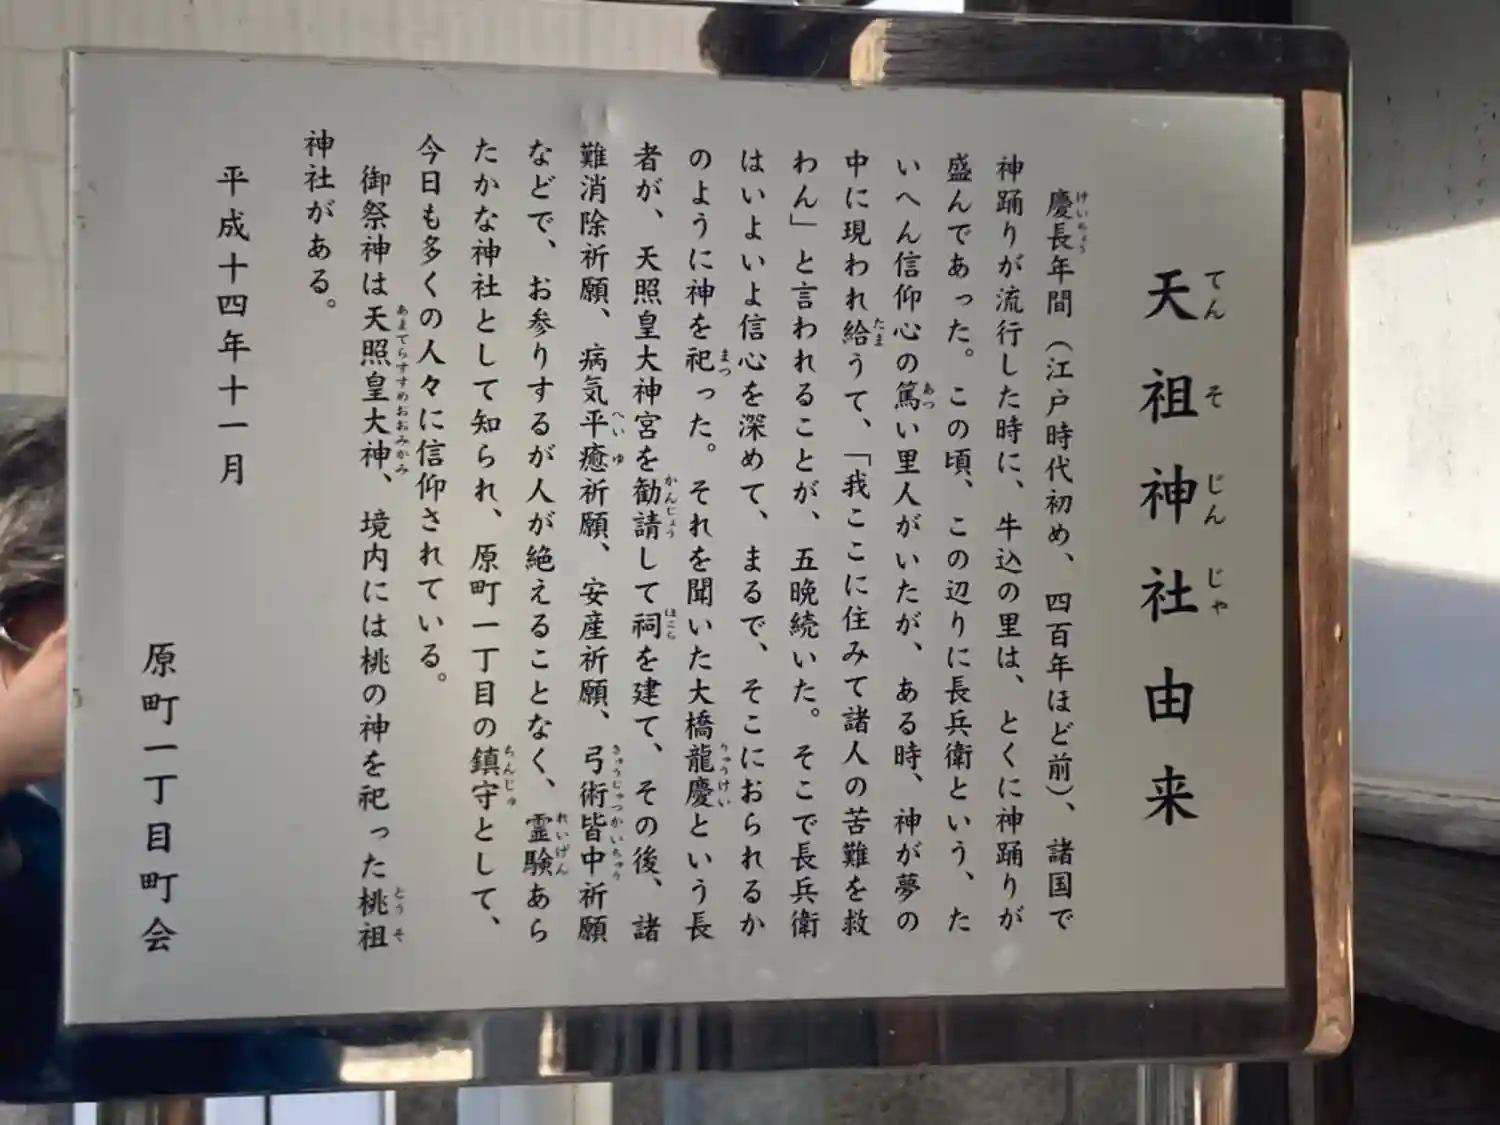 天祖神社由来
慶長年間（江戸時代初め、四百年ほど前）、諸国で
神踊りが流行した時に、牛込の里は、とくに神踊りが
盛んであった。この頃、この辺りに長兵衛という、た
いへん信仰心の篤い里人がいたが、ある時、神が夢の
中に現われ給うて、「我ここに住みて諸人の苦難を救
わん」と言われることが、五晩続いた。そこで長兵衛
はいよいよ信心を深めて、まるで、そこにおられるか
のように神を祀った。それを聞いた大橋龍慶という長
者が、天照皇大神宮を勧請して祠を建て、その後、諸
難消除祈願、病気平癒祈願、安産祈願、弓術皆中祈願
などで、お参りするが人が絶えることなく、霊験あら
たかな神社として知られ、原町一丁目の鎮守として、
今日も多くの人々に信仰されている。
御祭神は天照皇大神、境内には桃の神を祀った桃祖
神社がある。
平成十四年十一月
原町一丁目町会